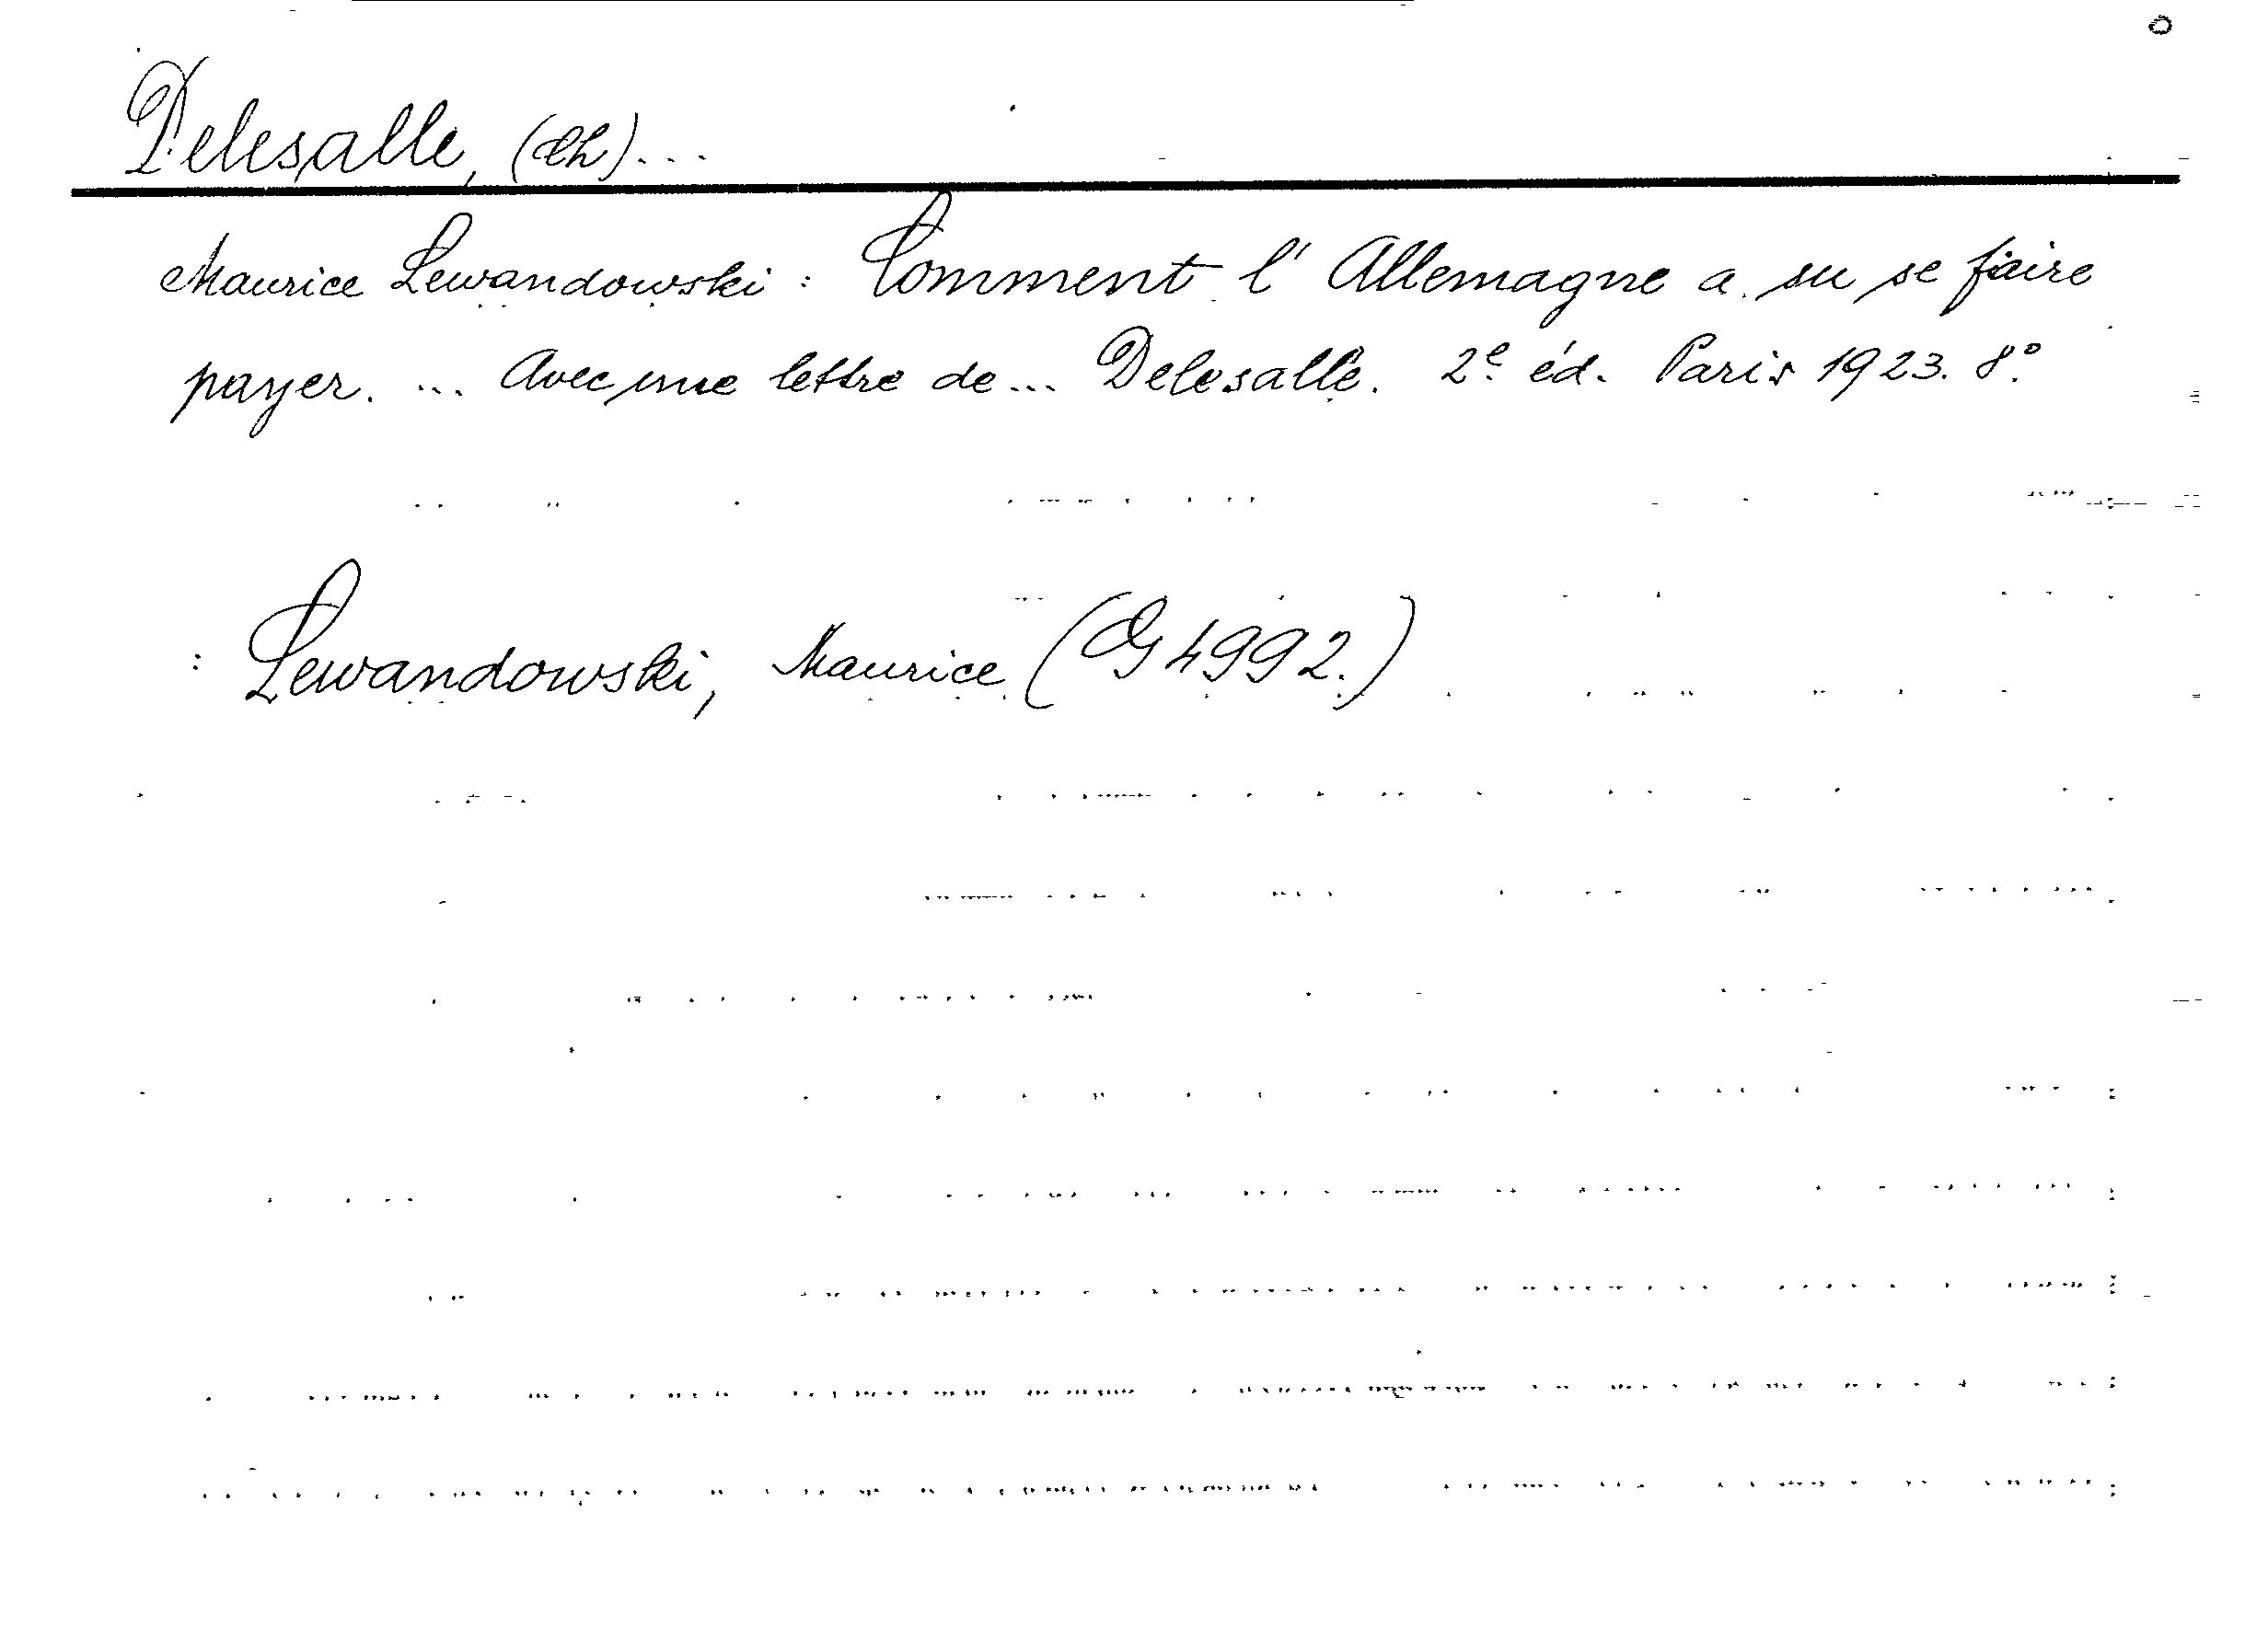 Delesalle, (Ch)...
Maurice Lewandowski: Comment l'Allemagne a su se faire
payer. ... Avec une lettre de... Delesalle. 2e éd. Paris 1923. 8°.
: Lewandowski, Maurice (G 4992.)